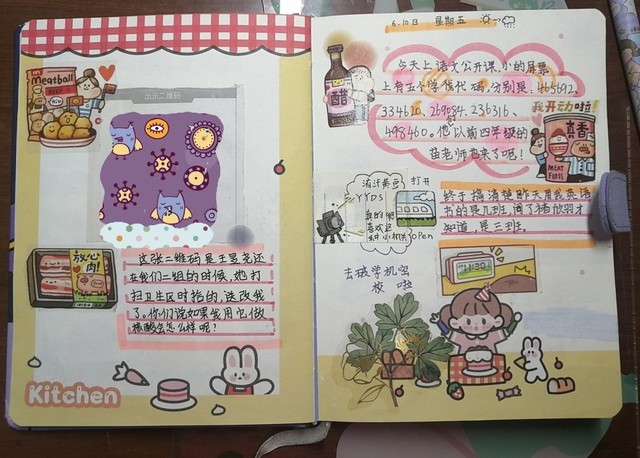 Meatball
出示二维码
放心肉!
这张二维码是王昱尧还
在我们二组的时候,她打
扫卫生区时捡的,送我
了。你们说如果我用它做
会怎么样呢?
Kitchen
6.10日 星期五
醋
今天上语文公开课,小的屏幕
上有五个学习代码,分别是:465692、
334610、269084、236316、
498460。他以前四年级的
苗老师也来了呢!
我开动啦!
真香
MEAT FLOSS
YYDS
打开
OPen
终于搞清楚昨天是我英语
书的是几班,问了猪欣羽才
知道,是三班。
11:30
去破学机室
校 啦